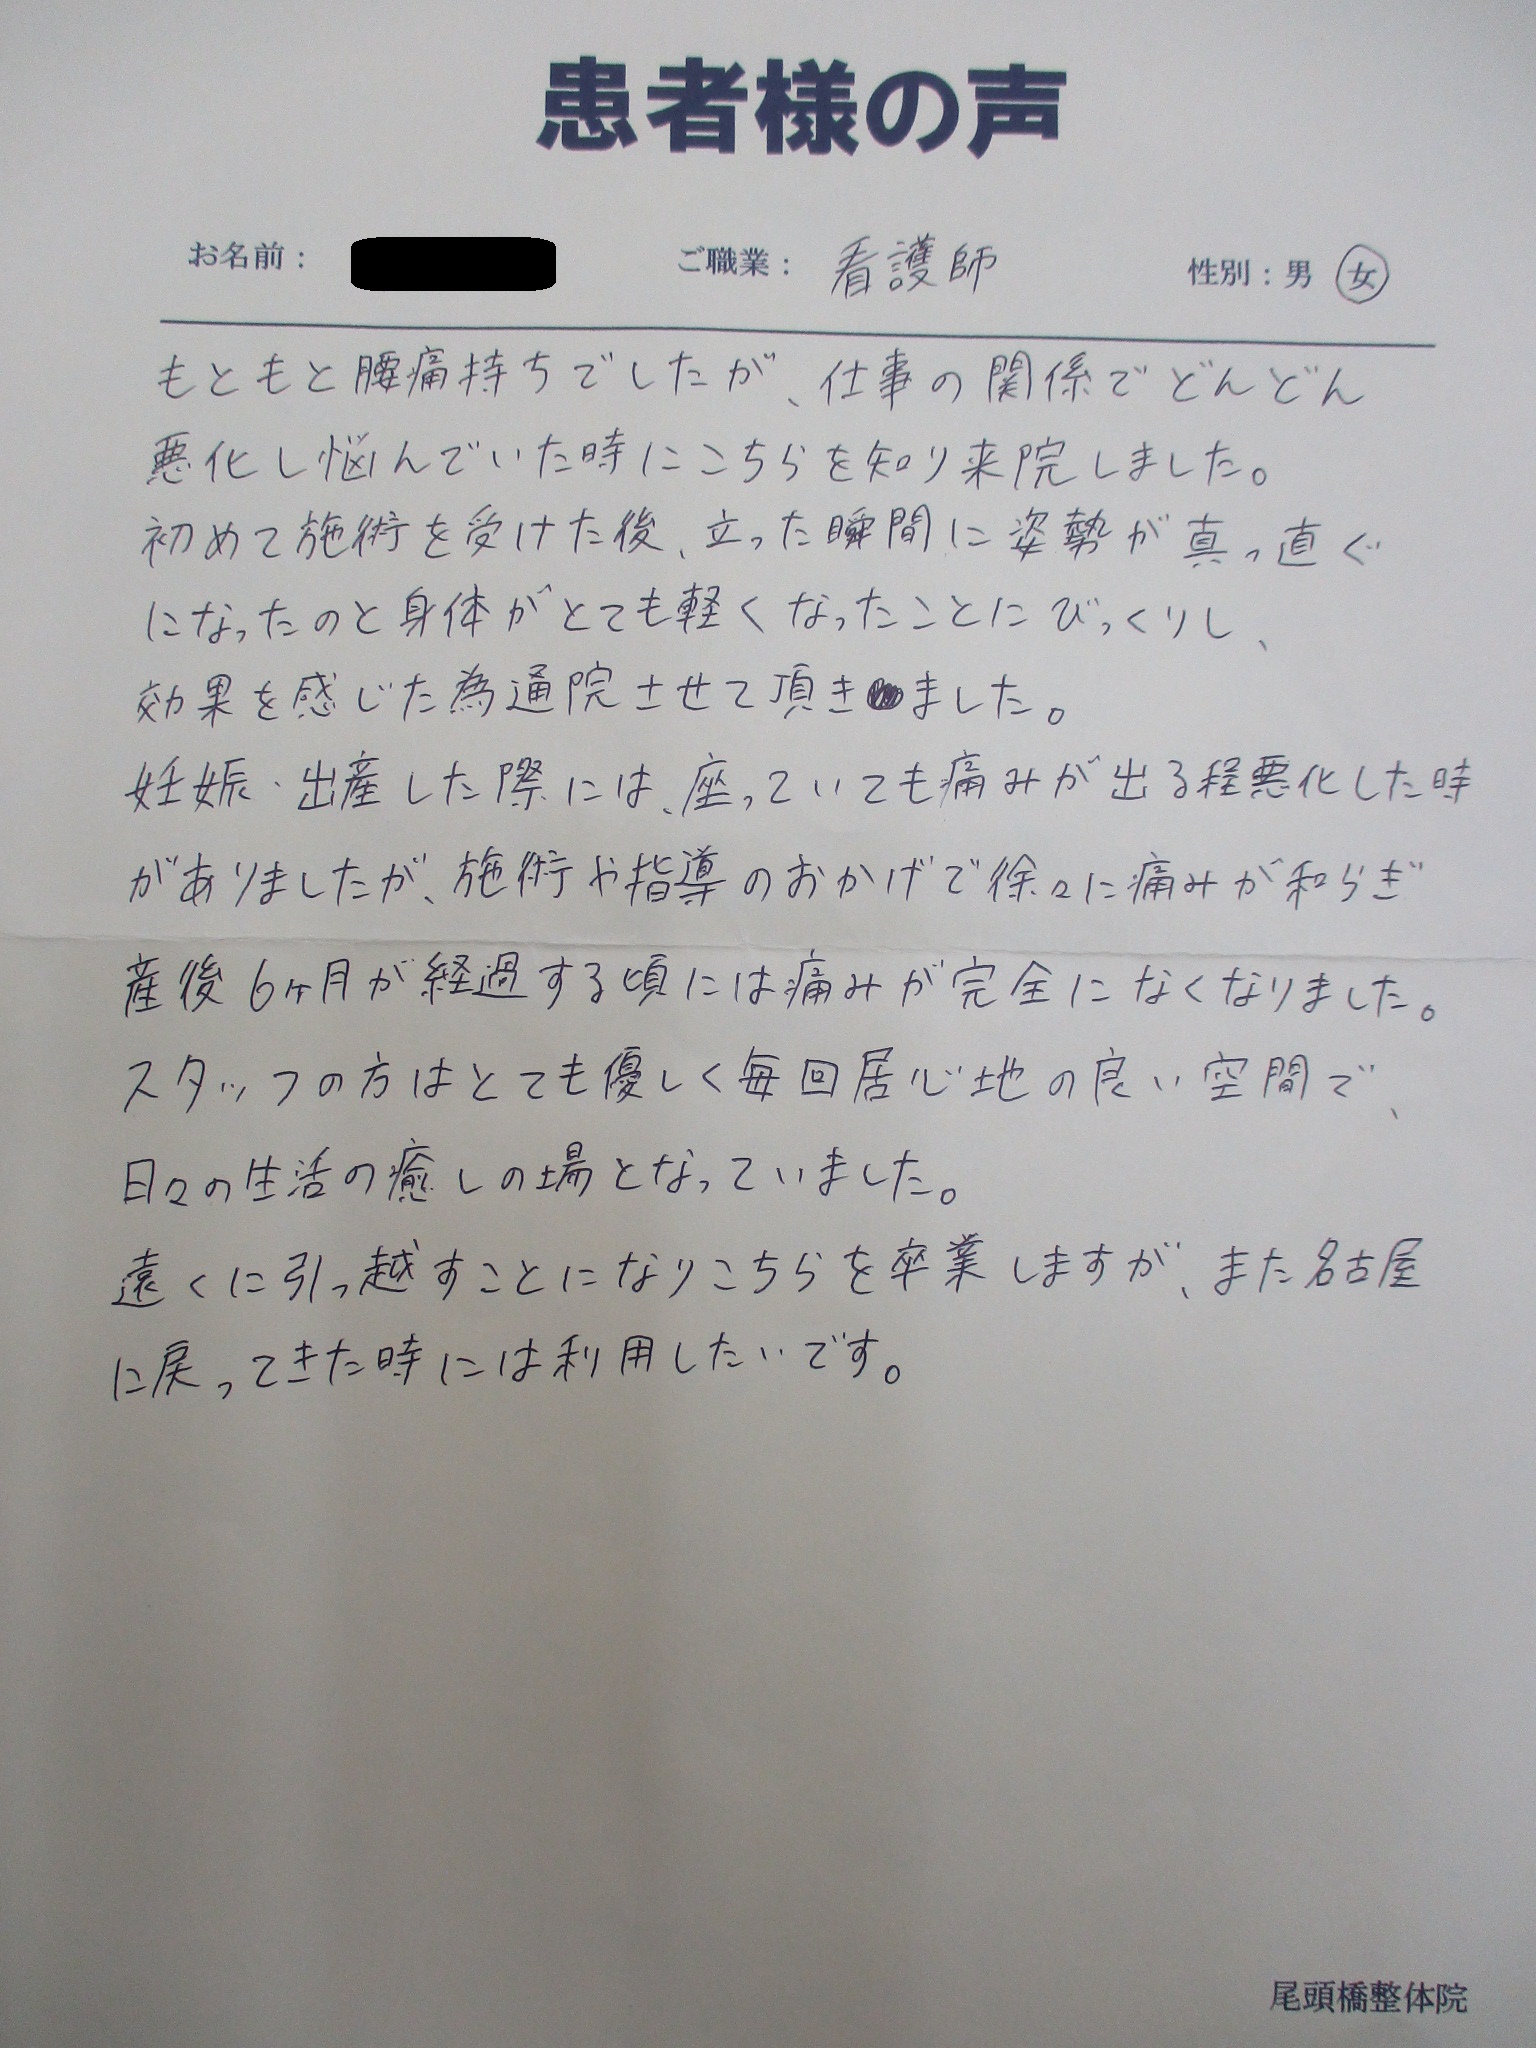 患者様の声
お名前： ご職業： 看護師 性別：男 女
もともと腰痛持ちでしたが、仕事の関係でどんどん
悪化し悩んでいた時にこちらを知り来院しました。
初めて施術を受けた後、立った瞬間に姿勢が真っ直ぐ
になったのと身体がとても軽くなったことにびっくりし、
効果を感じた為通院させて頂きました。
妊娠・出産した際には、座っていても痛みが出る程悪化した時
がありましたが、施術や指導のおかげで徐々に痛みが和らぎ
産後6ヶ月が経過する頃には痛みが完全になくなりました。
スタッフの方はとても優しく毎回居心地の良い空間で、
日々の生活の癒しの場となっていました。
遠くに引っ越すことになりこちらを卒業しますが、また名古屋
に戻ってきた時には利用したいです。
尾頭橋整体院